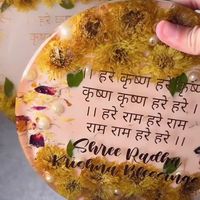 ।। हरे कृष्ण हरे
कृष्ण कृष्ण कृष्ण हरे हरे
।। हरे राम हरे राम
राम राम हरे हरे ।।
Shree Radha
Krishna Blessings